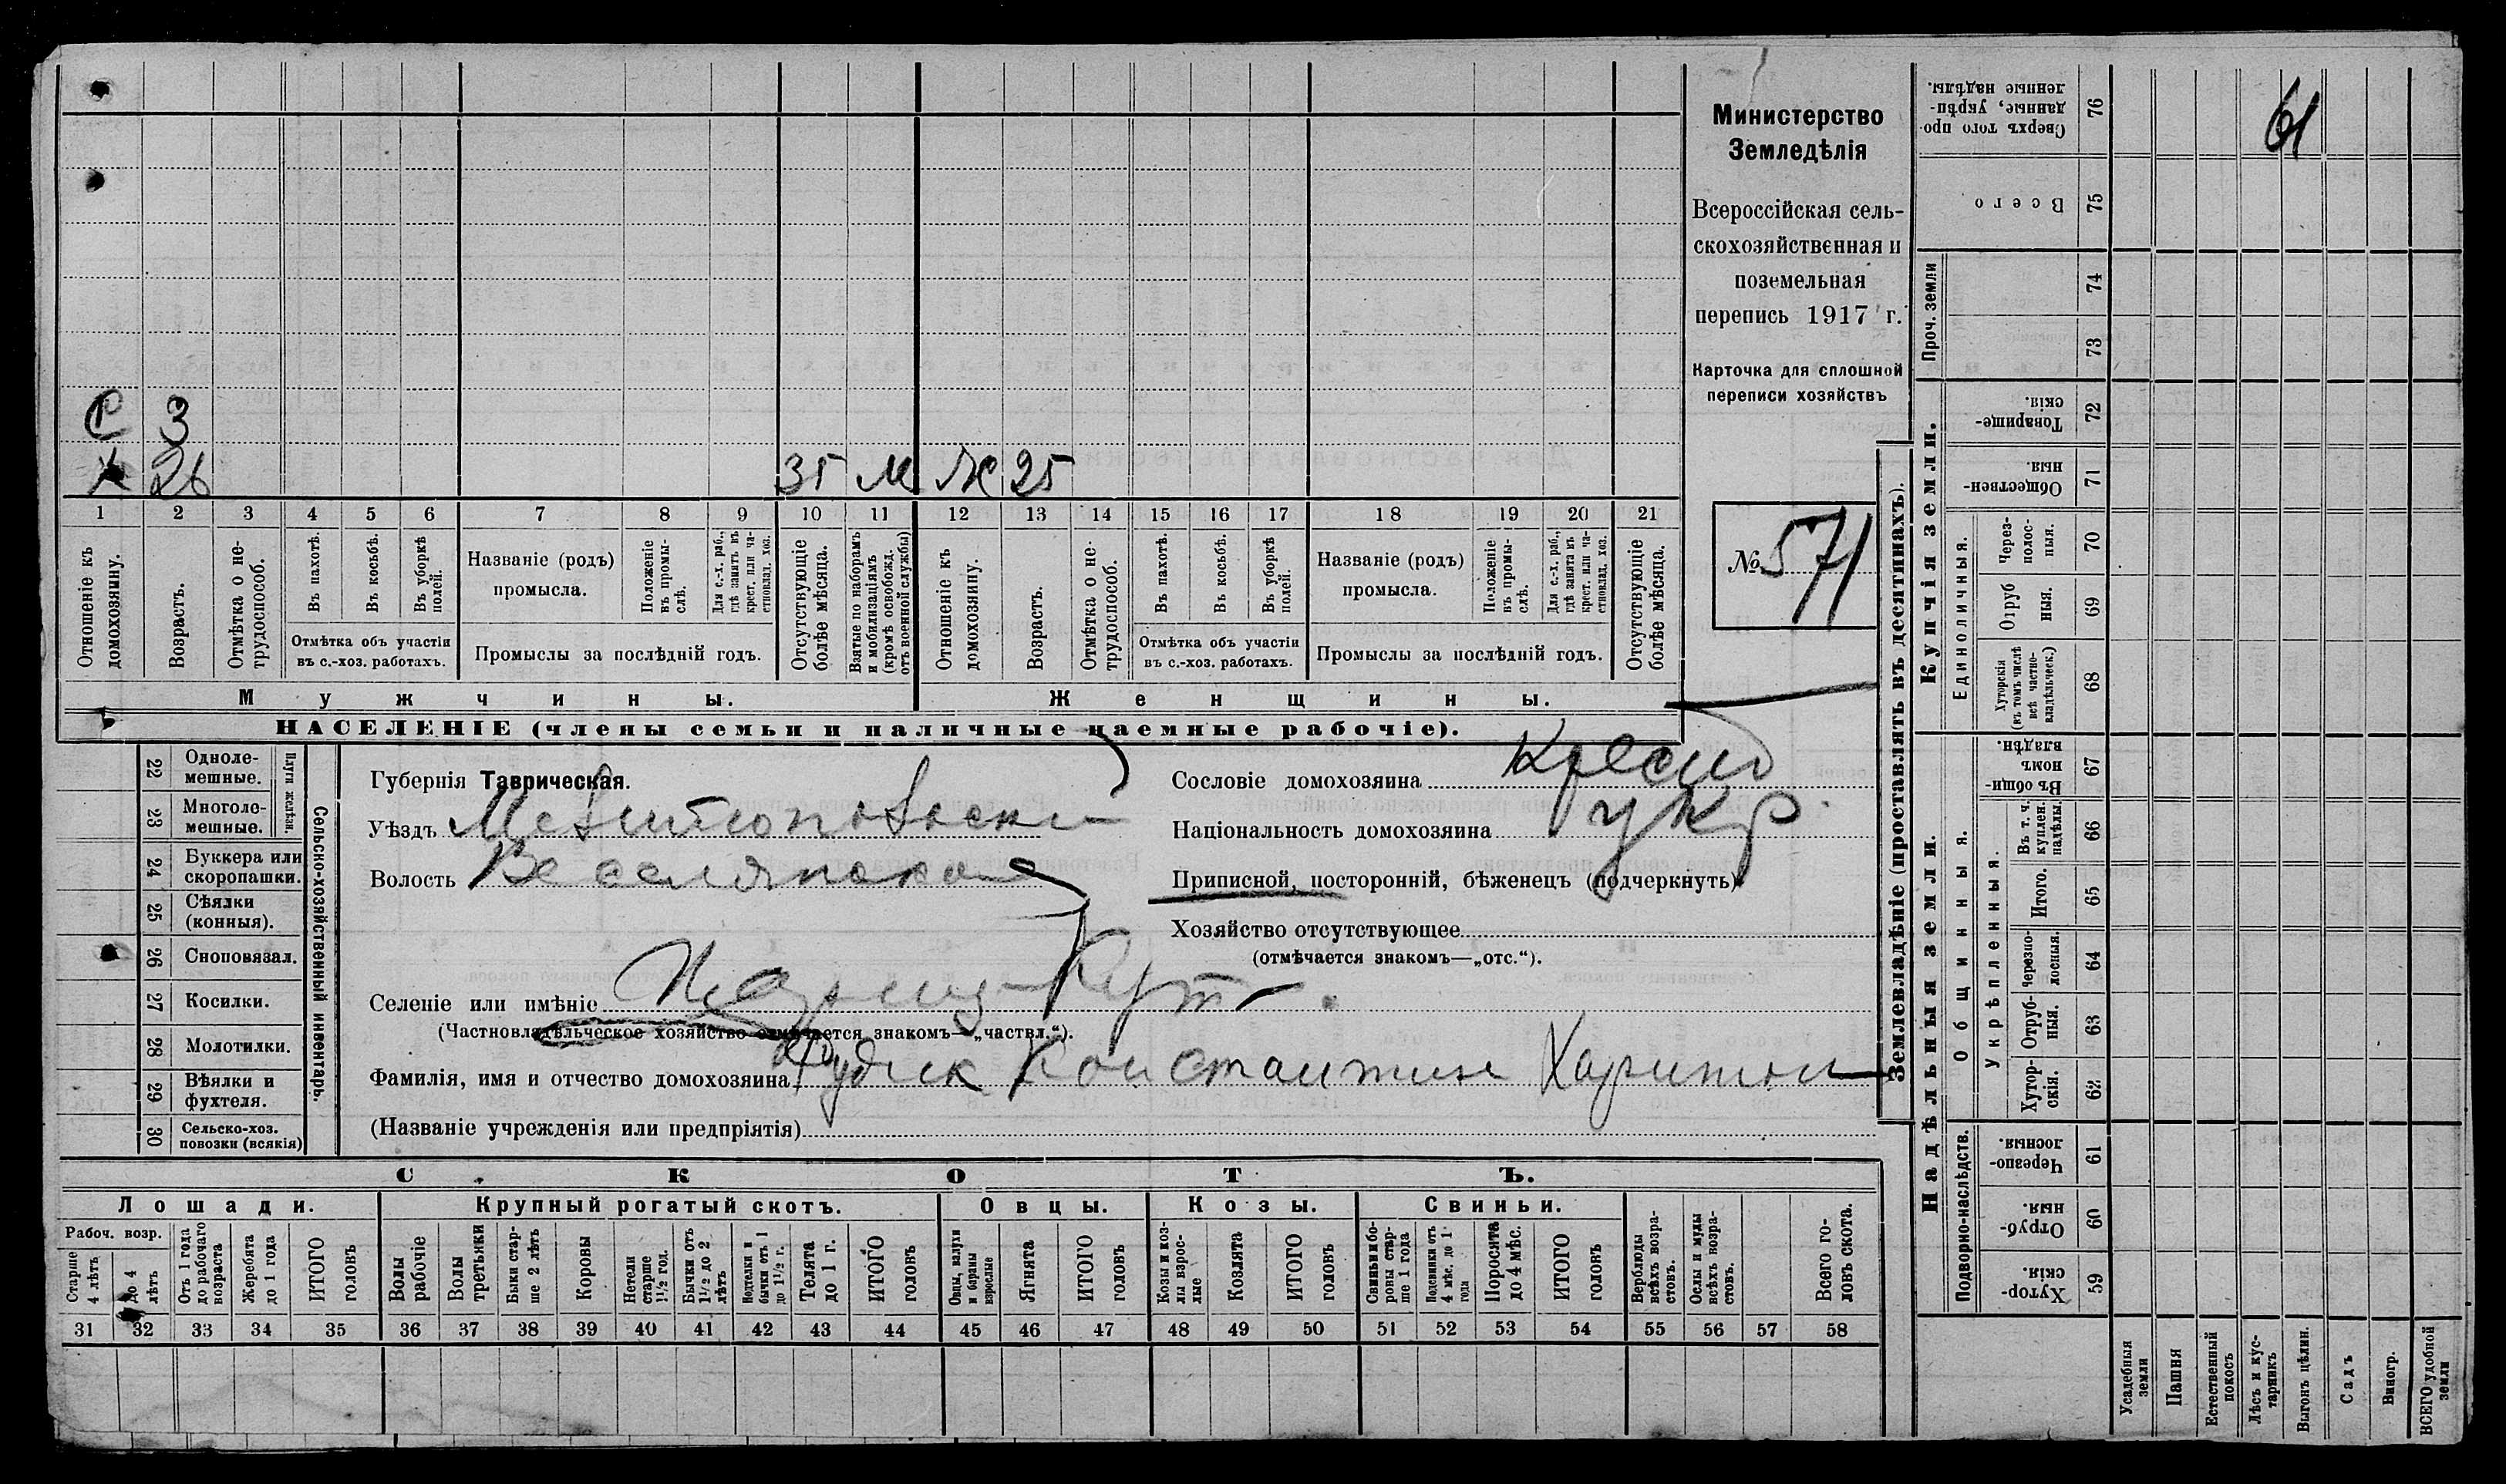 С 3
Х 26 35 М Ж 25
1 2 3 4 5 6 7 8 9 10 11 12 13 14 15 16 17 18 19 20 21
Отношеніе къ домохозяину.
Возрастъ.
Отмѣтка о не-трудоспособ.
Въ пахотѣ.
Въ косьбѣ.
Въ уборкѣ полей.
Отмѣтка объ участіи
въ с.-хоз. работахъ.
Названіе (родъ)
промысла.
Положеніе въ промы-слѣ.
Для с.-х. раб., гдѣ занятъ въ крест. или ча-стновлад. хоз.
Промыслы за послѣдній годъ.
Отсутствующіе болѣе мѣсяца.
Взятые по наборамъ и мобилизаціямъ (кромѣ освобожд. отъ военной службы)
Отношеніе къ домохозяину.
Возрастъ.
Отмѣтка о не-трудоспособ.
Въ пахотѣ.
Въ косьбѣ.
Въ уборкѣ полей.
Отмѣтка объ участіи
въ с.-хоз. работахъ.
Названіе (родъ)
промысла.
Положеніе въ промы-слѣ.
Для с.-х. раб., гдѣ занятъ въ крест. или ча-стновлад. хоз.
Промыслы за послѣдній годъ.
Отсутствующіе болѣе мѣсяца.
Мужчины. Женщины.
НАСЕЛЕНІЕ (члены семьи и наличные наемные рабочіе).
Министерство
Земледѣлія
Всероссійская сель-
скохозяйственная и
поземельная
перепись 1917 г.
Карточка для сплошной
переписи хозяйствъ
№ 571
Сельско-хозяйственный инвентарь.
Плуги желѣзн.
22 Одноле-мешные.
23 Многоле-мешные.
24 Буккера или скоропашки.
25 Сѣялки (конныя).
26 Сноповязал.
27 Косилки.
28 Молотилки.
29 Вѣялки и фухтеля.
30 Сельско-хоз. повозки (всякія)
Губернія Таврическая.
Уѣздъ
Волость
Селеніе или имѣніе
(Частновладѣльческое хозяйство отмѣчается знакомъ—„частвл.“).
Фамилія, имя и отчество домохозяина Рудик Константин Харитон
(Названіе учрежденія или предпріятія)
Сословіе домохозяина Крест
Національность домохозяина укр.
Приписной, посторонній, бѣженецъ (подчеркнуть)
Хозяйство отсутствующее
(отмѣчается знакомъ—„отс.“).
СКОТЪ.
Лошади. Крупный рогатый скотъ. Овцы. Козы. Свиньи.
Рабоч. возр.
Старше 4 лѣтъ
до 4 лѣтъ
Отъ 1 года до рабочаго возраста
Жеребята до 1 года
ИТОГО головъ
Волы рабочіе
Волы третьяки
Быки стар-ше 2 лѣтъ
Коровы
Нетели старше 1½ год.
Бычки отъ 1½ до 2 лѣтъ
бычки отъ 1 до 1½ г.
Телята до 1 г.
ИТОГО головъ
Овцы, валухи и бараны взрослые
Ягнята
ИТОГО головъ
Козы и коз-лы взрос-лые
Козлята
ИТОГО головъ
Свиньи и бо-ровы стар-ше 1 года
Подсвинки отъ 4 мѣс. до 1 года
Поросята до 4 мѣс.
ИТОГО головъ
Верблюды всѣхъ возра-стовъ.
Ослы и мулы всѣхъ возра-стовъ.
Всего го-ловъ скота.
31 32 33 34 35 36 37 38 39 40 41 42 43 44 45 46 47 48 49 50 51 52 53 54 55 56 57 58
Землевладѣніе (проставлять въ десятинахъ).
Проч. земли
Купчія земли.
Надѣльныя земли.
Сверхъ того про-данные, укрѣп-ленные надѣлы. 76
61
Всего 75
74
73
Товарище-скія. 72
Обществен-ныя. 71
Единоличныя.
Через-полос-ныя. 70
Отруб ныя. 69
Хуторскія (въ томъ числѣ всѣ частно-владѣльческ.) 68
Общинныя.
Въ общин-номъ владѣн. 67
Укрѣпленныя.
Въ т. ч. куплен. надѣлы. 66
Итого. 65
Черезпо-лосныя. 64
Отруб-ныя. 63
Хутор-скія. 62
Подворно-наслѣдств.
Черезпо-лосныя. 61
Отруб-ныя. 60
Хутор-скія. 59
Усадебныя земли
Пашня
Естественный покосъ
Лѣсъ и кус-тарникъ
Выгонъ цѣлин.
Садъ
Виногр.
ВСЕГО удобной земли